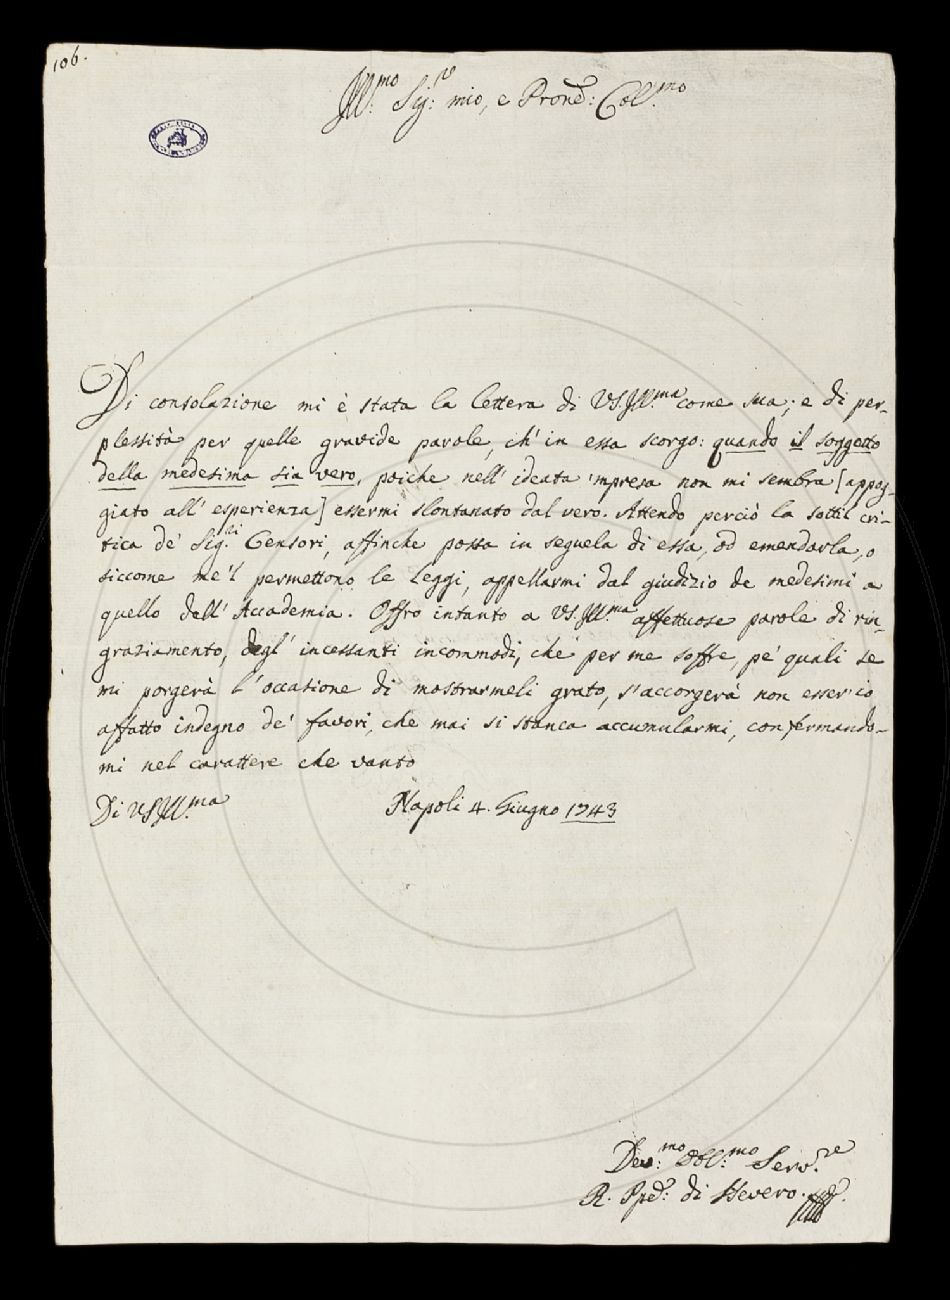 106.
Ill:mo Sig:re mio, e Prone: Col:mo
Di consolazione mi è stata la lettera di VS. Ill:ma come sua; e di per-
plessità per quelle gravide parole, ch' in essa scorgo: quando il soggetto
della medesima sia vero, poiche nell' ideata impresa non mi sembra [appog-
giato all' esperienza] essermi slontanato dal vero. Attendo perciò la sottil cri-
tica de' Sig:li Censori, affinche possa in seguela di essa, od emendarla, o
siccome me'l permettono le leggi, appellarmi dal giudizio de medesimi a
quello dell' Accademia. Offro intanto a VS. Ill:ma affettuose parole di rin-
graziamento, degl' incessanti incommodi, che per me soffre, pe' quali se
mi porgerà l'occasione di mostrarmeli grato, s'accorgerà non esser io
affatto indegno de' favori, che mai si stanca accumularmi, confermando-
mi nel carattere che vanto
Di VS Ill:ma Napoli 4. Giugno 1743
Dev:mo Obl:mo Serv:re
R. Ppe: di Severo.